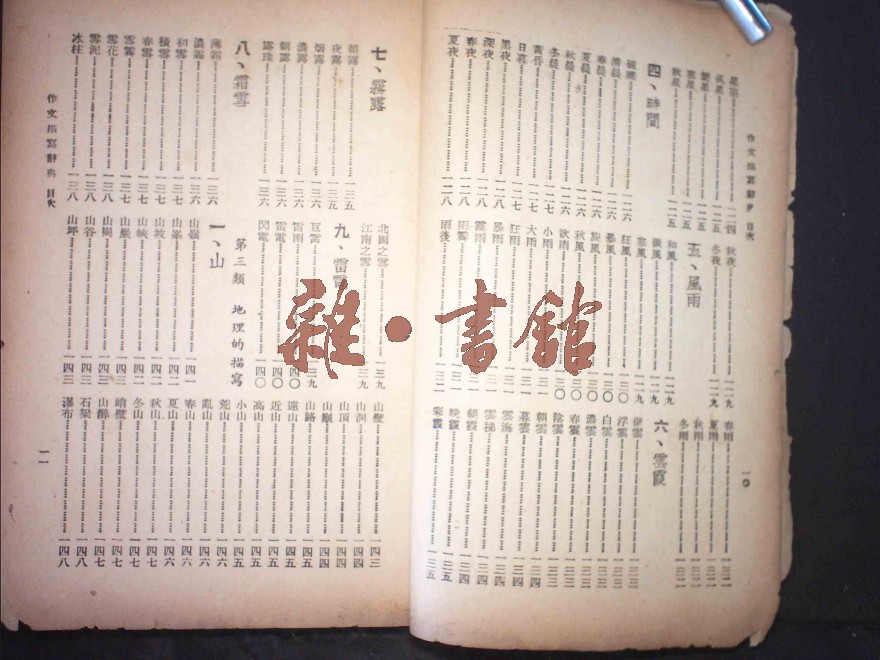 作文描寫辭典 目次
秋晨…………一二五
四、時間
破曉…………一二六
清晨…………一二六
春晨…………一二六
夏晨…………一二六
秋晨…………一二六
冬晨…………一二七
黃昏…………一二七
日暮…………一二七
黑夜…………一二八
深夜…………一二八
春夜…………一二八
夏夜…………一二八
秋夜…………一二九
冬夜…………一二九
五、風雨
和風…………一二九
微風…………一二九
寒風…………一二九
狂風…………一三〇
暴風…………一三〇
旋風…………一三〇
秋風
欲雨…………一三〇
小雨…………一三一
大雨
狂雨
暴雨
雨霽
雨後…………一三二
春雨…………一三二
夏雨…………一三二
秋雨…………一三二
冬雨…………一三二
六、雲霞
浮雲…………一三三
白雲…………一三三
濃雲…………一三三
春雲…………一三三
陰雲…………一三三
朝雲…………一三四
暮雲…………一三四
雲海…………一三四
雲梯…………一三四
朝霞…………一三四
晚霞…………一三四
彩霞…………一三五
一〇
七、霧露
朝霧…………一三五
夜霧…………一三五
烟霧…………一三六
濃霧…………一三六
朝露…………一三六
露珠…………一三六
八、霜雪
薄霜…………一三六
濃霜…………一三六
初雪…………一三七
積雪…………一三七
春雪…………一三七
雪景
雪花…………一三八
雪泥…………一三八
冰柱…………一三八
北國之雪…………一三九
江南之雪…………一三九
九、雷電
巨雷…………一三九
雷雨…………一四〇
雷電…………一四〇
閃電…………一四〇
第三類 地理的描寫
一、山
山嶺…………一四一
山峯…………一四二
山坡…………一四二
山峽…………一四二
山巖…………一四三
山崗…………一四三
山谷…………一四三
山坪…………一四三
山壁…………一四三
山洞…………一四四
山頂…………一四四
山巔…………一四四
山路…………一四五
遠山…………一四五
近山…………一四五
高山…………一四五
小山…………一四五
荒山…………一四六
亂山…………一四六
春山…………一四六
夏山…………一四六
秋山…………一四七
冬山…………一四七
峭壁…………一四七
山醉…………一四七
石梁…………一四八
瀑布…………一四八
作文描寫辭典 目次
一一
雜·書館